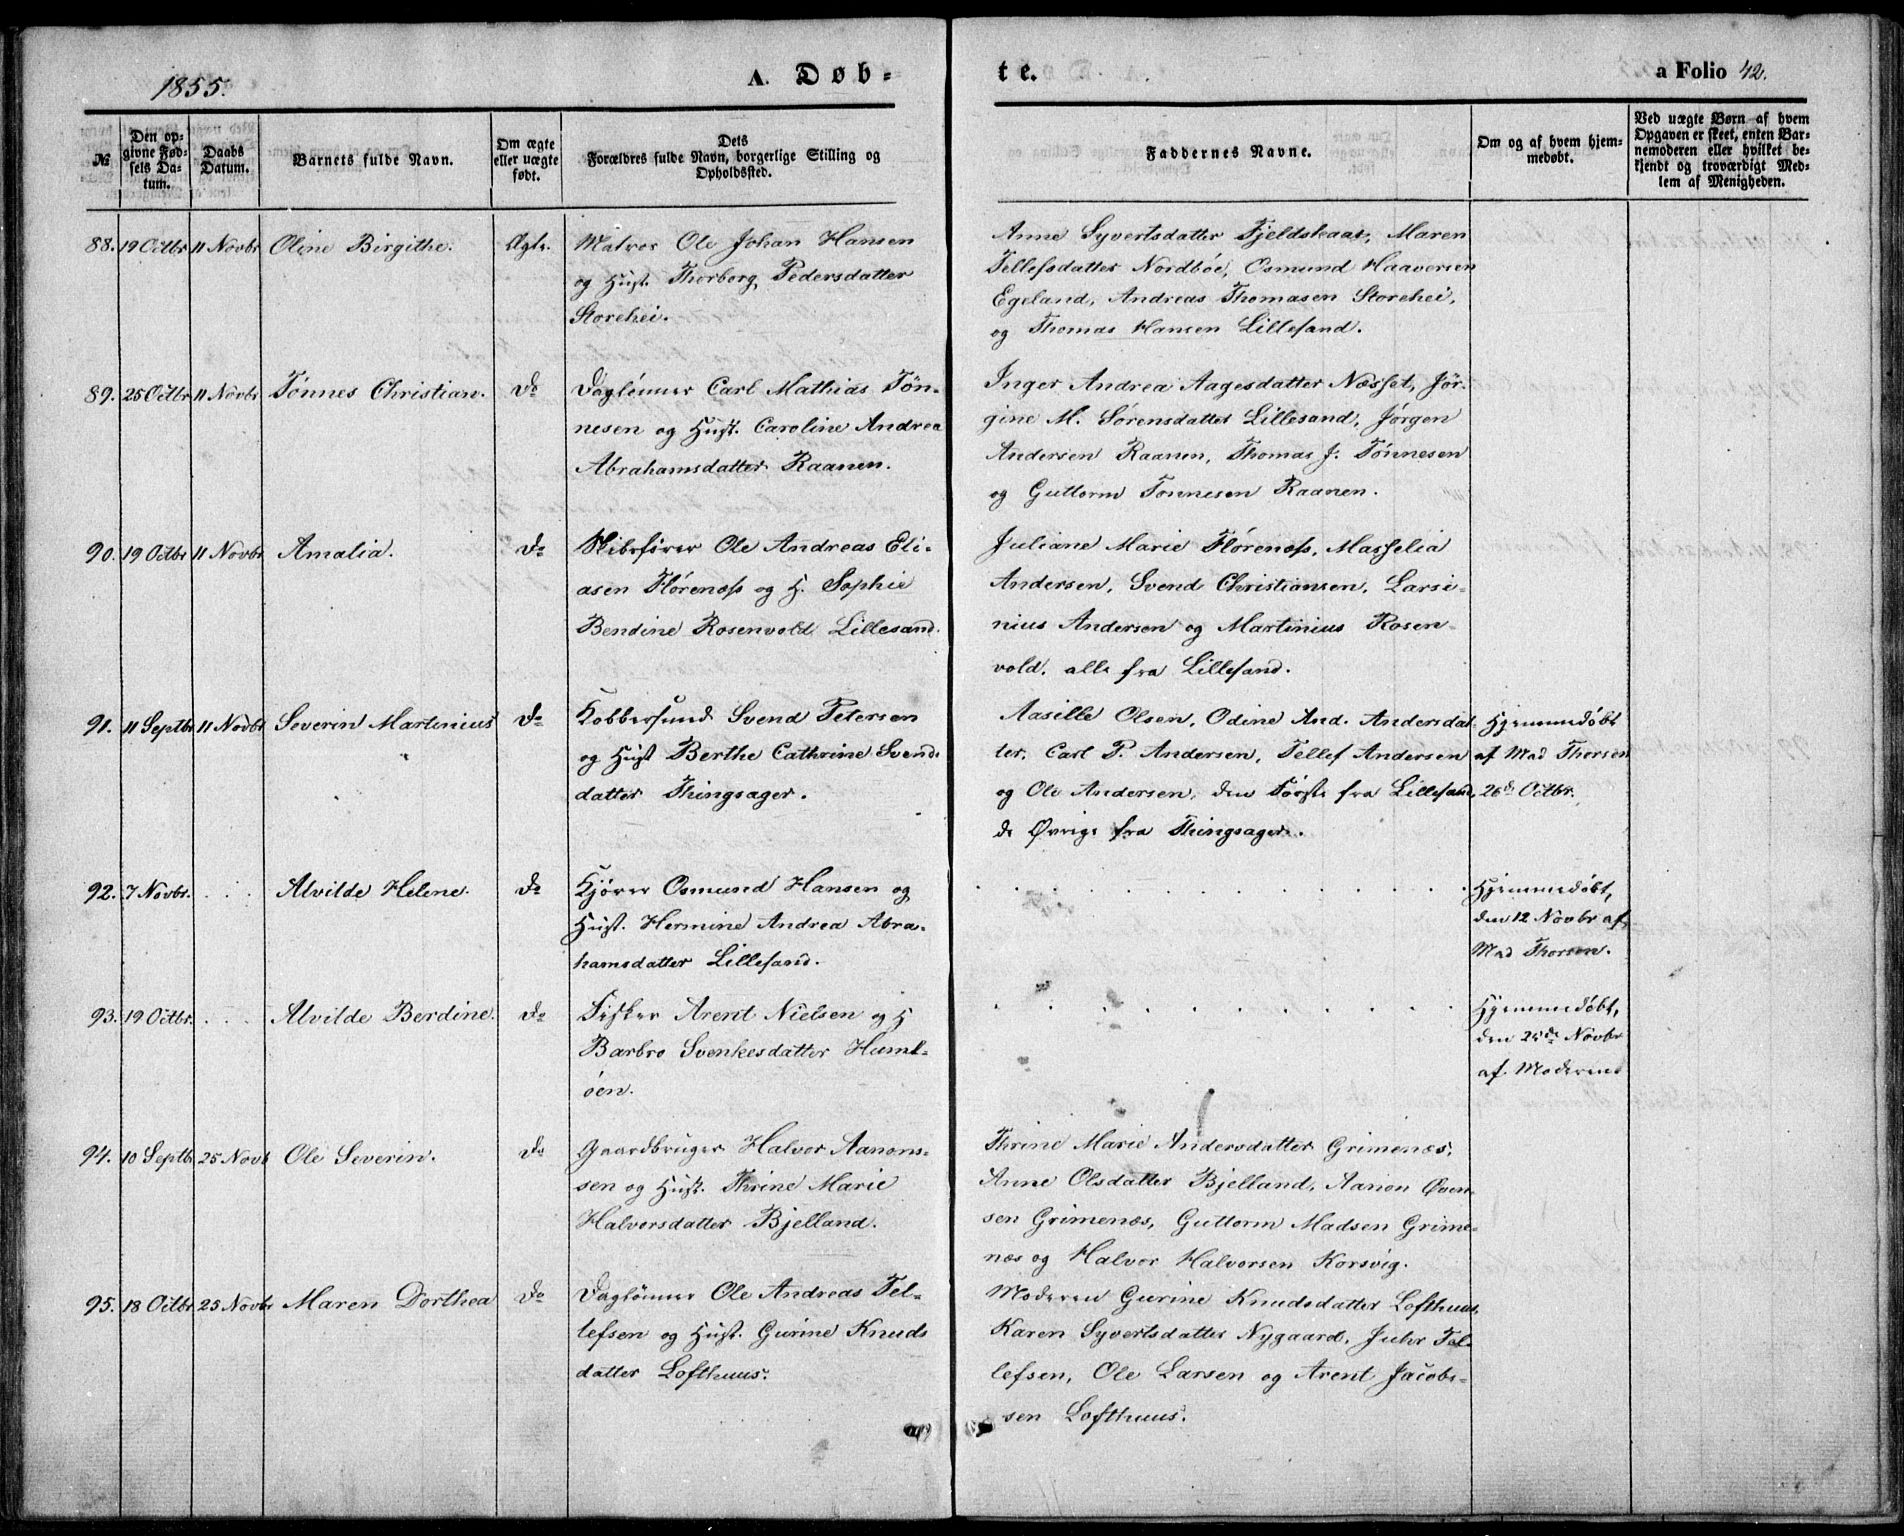 1855.
A. Døb-
te.
a Folio 42.
№
Den op-
givne Fød-
sels Da-
tum.
Daabs
Datum.
Barnets fulde Navn.
Om ægte
eller uægte
født.
Dets
Forældres fulde Navn, borgerlige Stilling og
Opholdssted.
Faddernes Navne.
Om og af hvem hjem-
medøbt.
Ved uægte Børn af hvem
Opgaven er skeet, enten Bar-
nemoderen eller hvilket be-
kjendt og troværdigt Med-
lem af Menigheden.
88. 19 Octbr 11 Novbr Oline Birgithe. Ægte.
Matros Ole Johan Hansen
og Hust. Thorborg Pedersdatter
Storehei.
Anne Syvertsdatter Fjeldskaar, Maren
Tellefsdatter Nordböe, Osmund Haaversen
Egeland, Andreas Thomasen Storehei,
og Thomas Hansen Lillesand.
89. 25 Octbr 11 Novbr Tönnes Christian. Do
Daglönner Carl Mathias Tön-
nesen og Hust. Caroline Andrea
Abrahamsdatter Raanen.
Inger Andrea Aagesdatter Næsset, Jør-
gine M. Sørensdatter Lillesand, Jørgen
Andersen Raanen, Thomas J. Tønnesen
og Guttorm Tønnesen Raanen.
90. 19 Octbr 11 Novbr Amalia. Do
Skibsfører Ole Andreas Eli-
asen Flörenæss og H. Sophie
Bendine Rosenvold Lillesand.
Juliane Marie Flörenæss, Masselia
Andersen, Svend Christiansen, Larsi-
nius Andersen og Martinius Rosen-
vold. alle fra Lillesand.
91. 11 Septbr 11 Novbr Severin Martinius Do
Kobbersmed Svend Petersen
og Hust Berthe Cathrine Svends
datter Thingsager.
Aasille Olsen, Odine And. Andersdat-
ter, Carl P. Andersen, Tellef Andersen
og Ole Andersen, den Første fra Lillesand,
de Øvrige fra Thingsager.
Hjemmedøbt
af Mad Thorsen
26d Octbr.
92. 7 Novbr. . . . Alvilde Helene. Do
Kjører Osmund Hansen og
Hust. Hermine Andrea Abra-
hamsdatter Lillesand.
Hjemmedøbt,
den 12 Novbr af
Mad Thorsen.
93. 19 Octbr. . . . Alvilde Berdine. Do
Fisker Arent Nielsen og H
Barbro Svenkesdatter Huml-
öen.
Hjemmedøbt,
den 25de Novbr
af Moderen.
94. 10 Septb. 25 Novb Ole Severin. Do
Gaardbruger Halvor Aanons-
sen og Hust. Thrine Marie
Halvorsdatter Bjelland.
Thrine Marie Andersdatter Grimenæs,
Anne Olsdatter Bjelland, Aanon Øven-
sen Grimenæs, Guttorm Madsen Grime-
næs og Halvor Halvorsen Korsvig.
95. 18 Octbr 25 Novbr Maren Dorthea Do
Daglönner Ole Andreas Tel-
lefsen og Hust. Gurine Knuds
datter Lofthuus.
Moderen Gurine Knudsdatter Lofthuus,
Karen Syvertsdatter Nygaard, Juhr Tel-
lefsen, Ole Larsen og Arent Jacob-
sen Lofthuus.